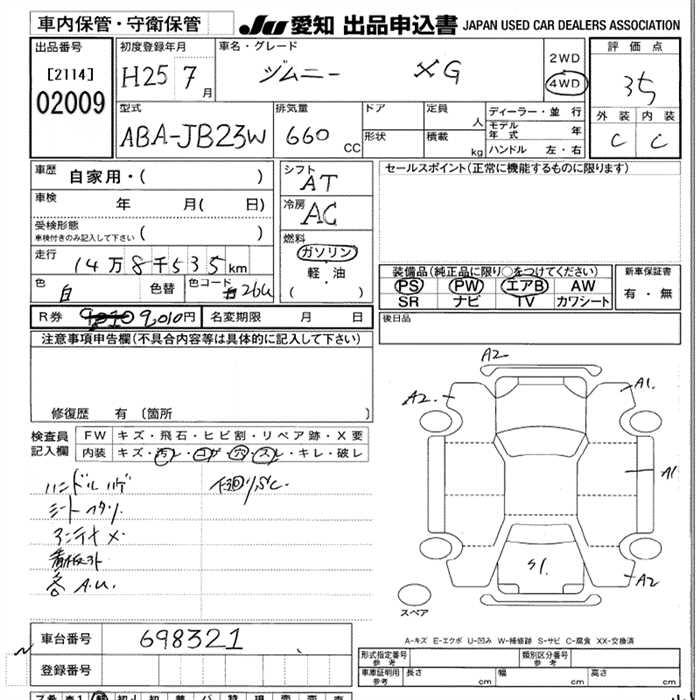 車内保管・守衛保管
JU 愛知 出品申込書 JAPAN USED CAR DEALERS ASSOCIATION
出品番号
[2114]
02009
初度登録年月
H25 7月
車名・グレード
ジムニー XG
2WD
4WD
評価点
35
外装 内装
C C
型式
ABA-JB23W
排気量
660 CC
ドア
形状
定員 人
積載 kg
ディーラー・並行
モデル年式 年
ハンドル 左・右
車歴 自家用・( )
車検 年 月( 日)
受検形態
車検付きのみ記入して下さい ( )
走行 14万8千535km
色 白 色替 色コード 26U
シフト AT
冷房 AC
燃料
ガソリン
軽・油
( )
セールスポイント(正常に機能するものに限ります)
装備品(純正品に限り○をつけてください)
PS PW エアB AW
SR ナビ TV カワシート
新車保証書
有・無
R券 9,010円 名変期限 月 日
後日品
注意事項申告欄(不具合内容等は具体的に記入して下さい)
修復歴 有 (箇所 )
検査員記入欄
FW キズ・飛石・ヒビ割・リペア跡・X要
内装 キズ・汚レ・コゲ・穴・スレ・キレ・破レ
ハンドルハゲ
シート
アンテナ×
看板外
各A.U.
下廻り S.C.
A2
A2
A1
A1
A2
S1
スペア
A-キズ E-エクボ U-凹み W-補修跡 S-サビ C-腐食 XX-交換済
車台番号 698321
登録番号
形式指定番号 参考
類別区分番号 参考
車庫証明用 参考 長さ 幅 高さ